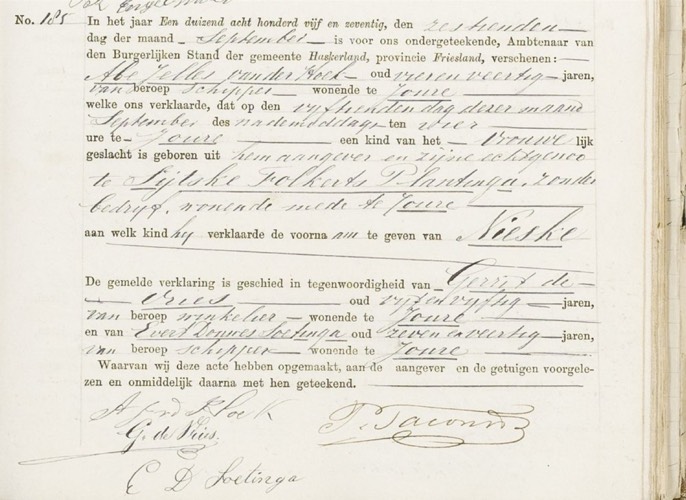 No. 185 In het jaar Een duizend acht honderd vijf en zeventig, den zestienden
dag der maand September is voor ons ondergeteekende, Ambtenaar van
den Burgerlijken Stand der gemeente Haskerland, provincie Friesland, verschenen:
Abe Jelles van der Hoek oud vier en veertig jaren,
van beroep schipper wonende te Joure
welke ons verklaarde, dat op den vijftienden dag dezer maand
September des nademiddags ten vier
ure te Joure een kind van het vrouwelijk
geslacht is geboren uit hem aangever en zijne echtgenoo
te Sijtske Folkerts Plantinga, zonder
bedrijf, wonende mede te Joure
aan welk kind hij verklaarde de voorna am te geven van Nieske
De gemelde verklaring is geschied in tegenwoordigheid van Gerrit de
Vries oud vijf en vijftig jaren,
van beroep winkelier wonende te Joure
en van Evert Donnes Soetinga oud zeven en veertig jaren,
van beroep schipper wonende te Joure
Waarvan wij deze acte hebben opgemaakt, aan de aangever en de getuigen voorgele-
zen en onmiddelijk daarna met hen geteekend.
A J vd Hoek
G. de Vries.
E D Soetinga